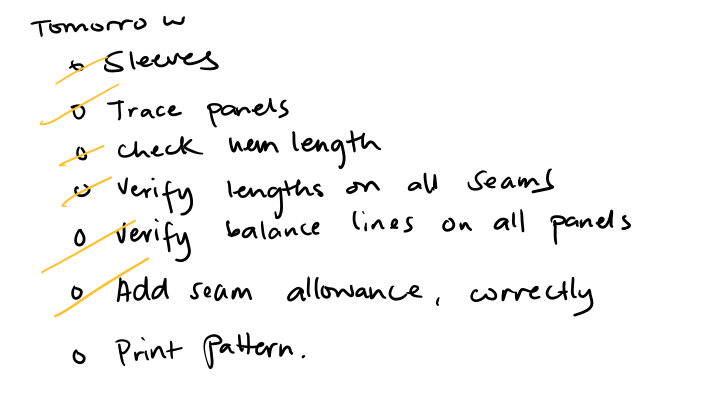 Tomorrow
Sleeves
Trace panels
check hem length
Verify lengths on all seams
Verify balance lines on all panels
Add seam allowance, correctly
Print pattern.